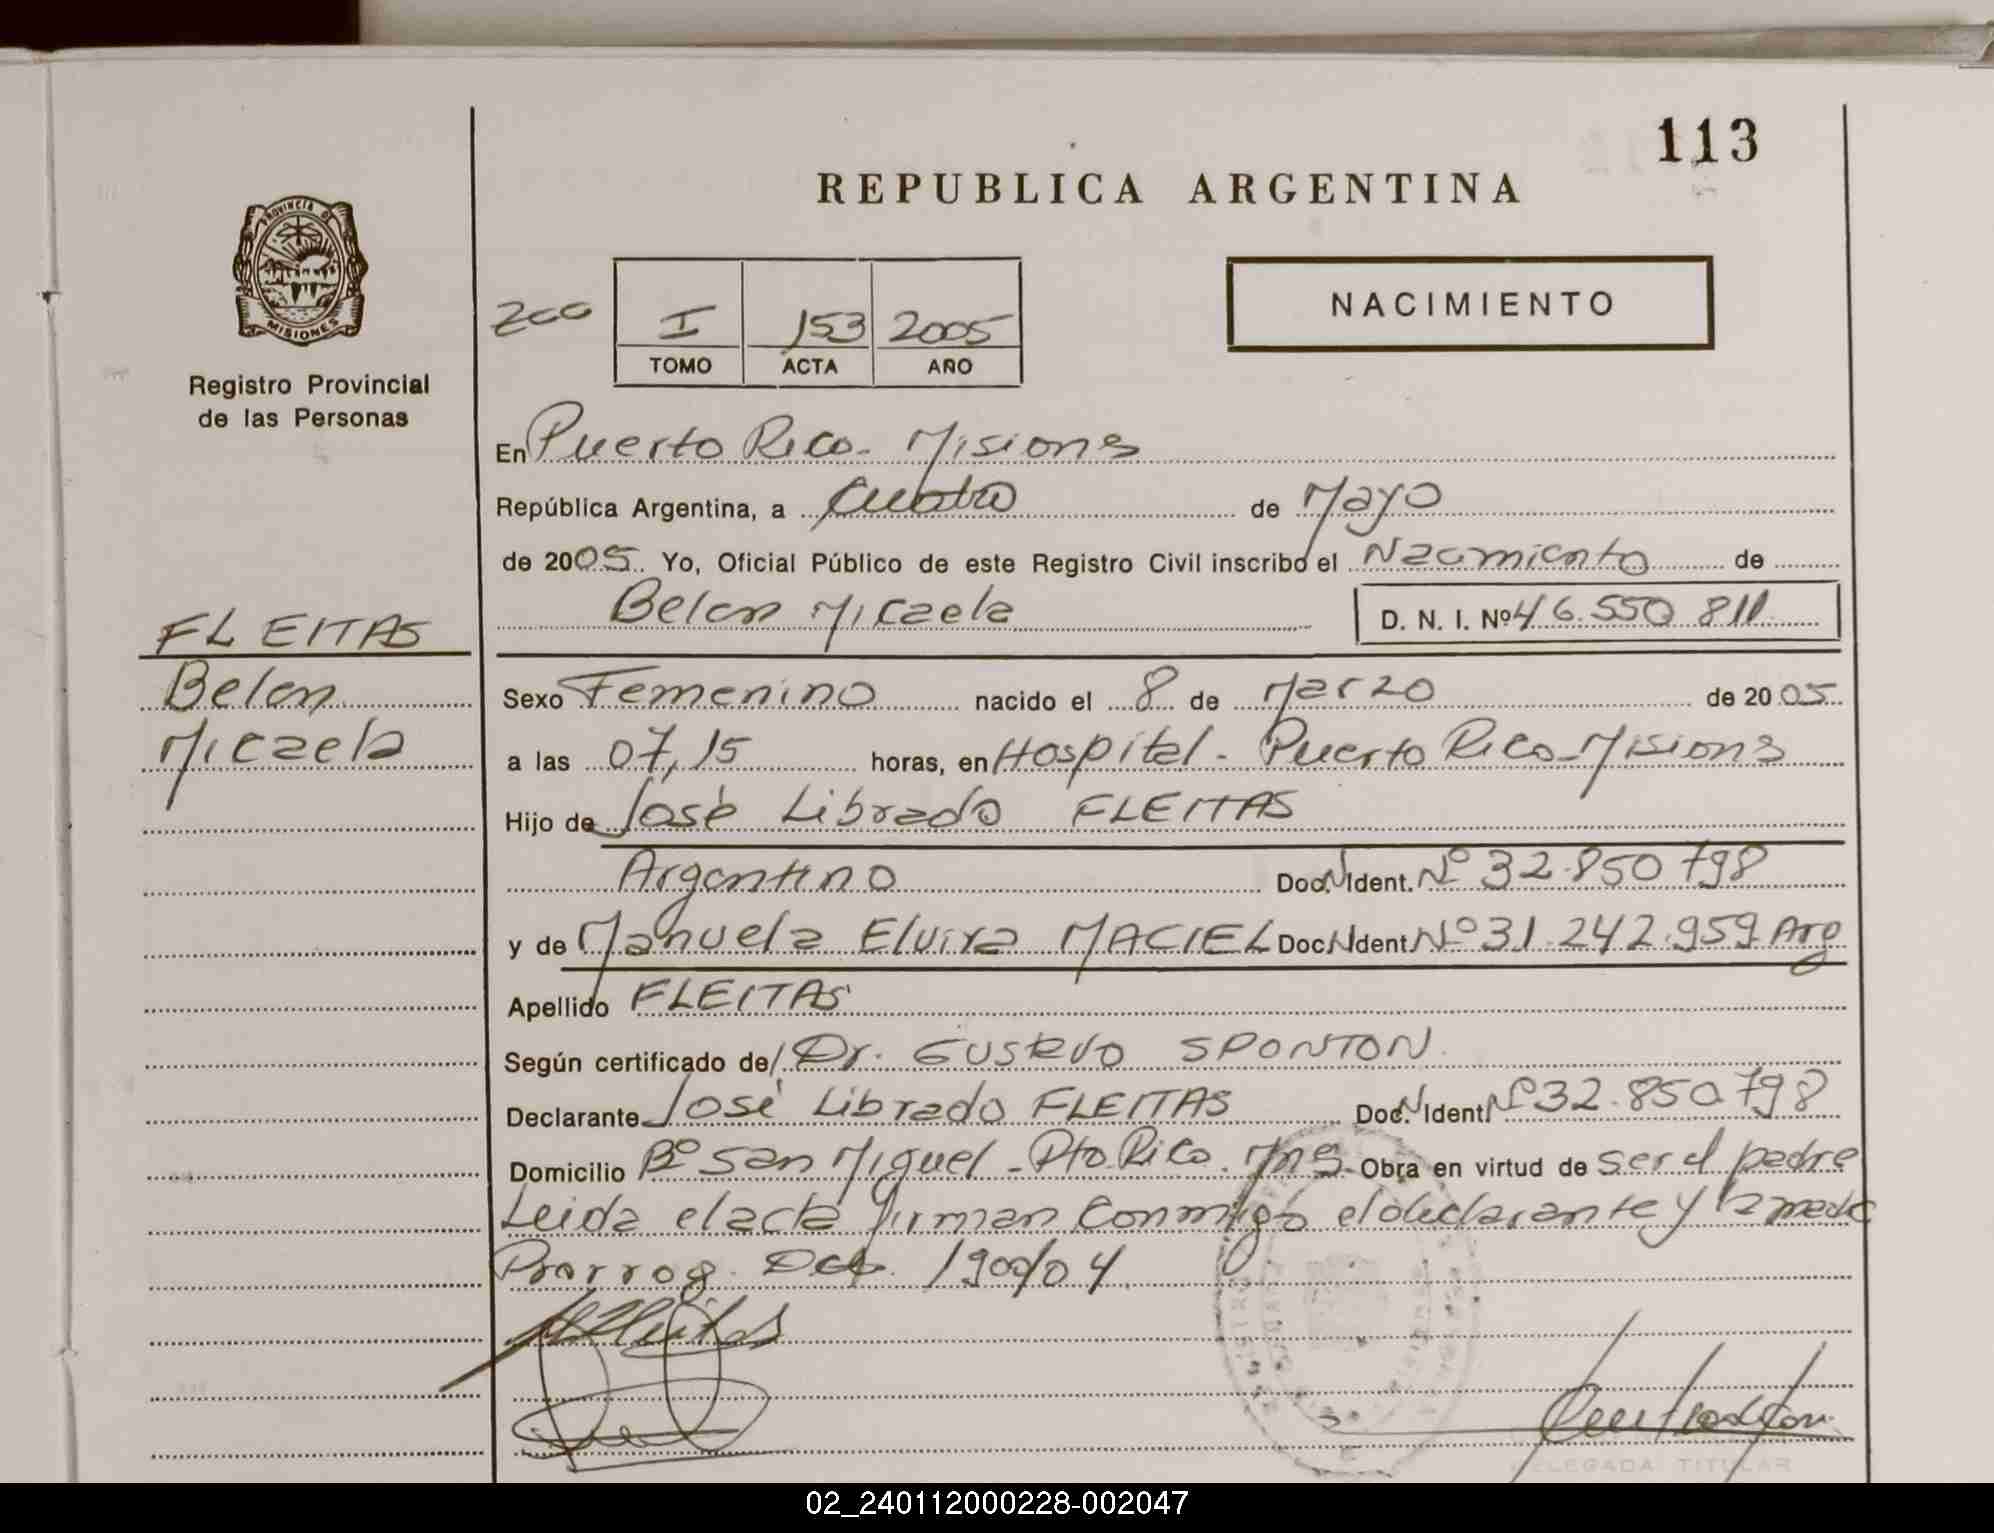 113
REPUBLICA ARGENTINA
PROVINCIA DE
MISIONES
Registro Provincial
de las Personas
200
I 153 2005
TOMO ACTA AÑO
NACIMIENTO
En Puerto Rico - Misiones
República Argentina, a Cuatro de Mayo
de 2005. Yo, Oficial Público de este Registro Civil inscribo el Nacimiento de
Belen Micaela D. N. I. Nº 46.550 811
FLEITAS
Belen
Micaela
Sexo Femenino nacido el 8 de Marzo de 2005
a las 07,15 horas, en Hospital - Puerto Rico - Misiones
Hijo de José Librado FLEITAS
Argentino Doc. N Ident. Nº 32.850 798
y de Manuela Elvira MACIEL Doc. N Ident. Nº 31.242.959 Arg
Apellido FLEITAS
Según certificado del Dr. Gustavo SPONTON.
Declarante José Librado FLEITAS Doc. N Ident. Nº 32.850.798
Domicilio Bº San Miguel - Pto Rico. Mnes. Obra en virtud de ser el padre
Leida el acta firman conmigo el declarante y la madre
Prorrog. Dcto. 1900/04
DELEGADA TITULAR
02_240112000228-002047